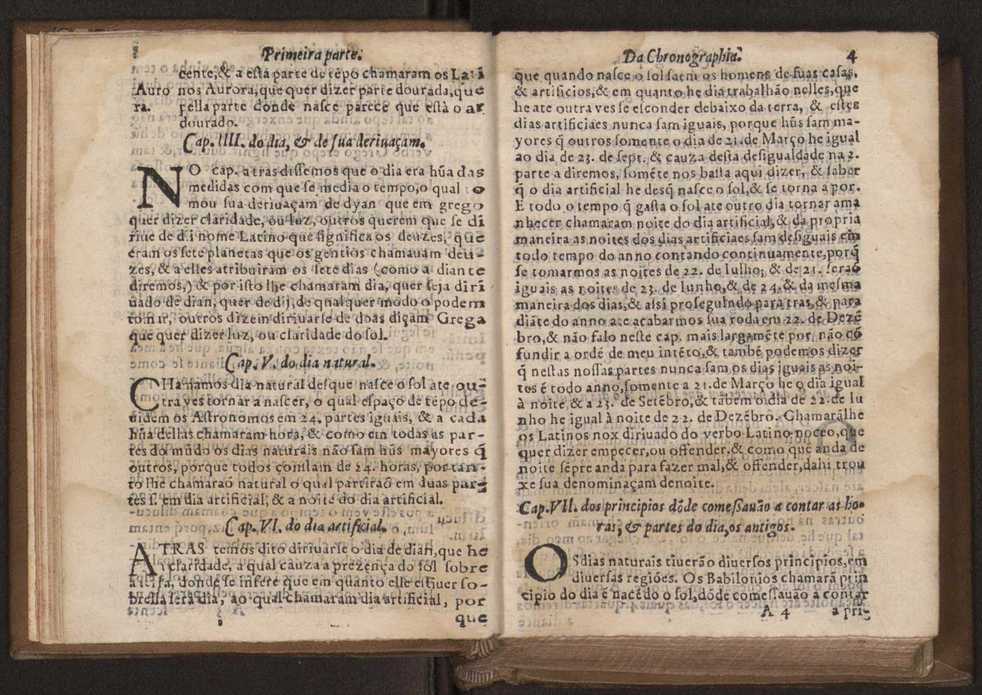 Primeira parte.
cente,& a esta parte de tẽpo chamaram os La
Auro nos Aurora,que quer dizer parte dourada,que
ra. pella parte donde nasce parece que está o ar
dourado.
Cap. IIII. do dia, & de sua deriuaçam.
NO cap. atras dissemos que o dia era hũa das
medidas com que se media o tempo,o qual to
mou sua deriuaçam de dyan que em grego
quer dizer claridade, ou luz, outros querem que se di
riue de dii nome Latino que significa os deuzes, que
eram os sete planetas que os gentios chamauam deu-
zes, & a elles atribuiram os sete dias (como a diante
diremos,) & por isto lhe chamaram dia, quer seja diri
uado de dian, quer de dij, de qualquer modo o podem
tomar, outros dizem diriuarse de doas diçam Grega
que quer dizer luz, ou claridade do sol.
Cap. V. do dia natural.
CHamamos dia natural desque nasce o sol ate ou-
tra ves tornar a nascer, o qual espaço de tẽpo de-
uidem os Astronomos em 24. partes iguais, & a cada
hũa dellas chamaram hora, & como em todas as par-
tes do mũdo os dias naturais não sam hũs mayores q̃
outros, porque todos constam de 24. horas, por tan-
to lhe chamarão natural o qual partirão em duas par-
tes s. em dia artificial, & a noite do dia artificial.
Cap. VI. do dia artificial.
ATRAS temos dito diriuarse o dia de dian,que he
claridade, a qual cauza a prezença do sol sobre
a terra, donde se infere que em quanto elle estiuer so-
bre ella será dia, ao qual chamaram dia artificial, por
que
Da Chronographia. 4
que quando nasce o sol saem os homens de suas casas,
& artificios,& em quanto he dia trabalhão nelles,que
he ate outra ves se esconder debaixo da terra, & estes
dias artificiaes nunca sam iguais, porque hũs sam ma-
yores q̃ outros somente o dia de 21. de Março he igual
ao dia de 23. de sept. & cauza desta desigualdade na 2.
parte a diremos, somẽte nos basta aqui dizer, & saber
q̃ o dia artificial he desq̃ nasce o sol,& se torna a por.
E todo o tempo q̃ gasta o sol ate outro dia tornar ama
nhecer chamaram noite do dia artificial, & da propria
maneira as noites dos dias artificiaes sam desiguais em
todo tempo do anno contando continuamente,porq̃
se tomarmos as noites de 22. de Iulho, & de 21. serão
iguais as noites de 23. de Iunho,& de 24.& da mesma
maneira dos dias,& assi proseguindo para tras,& para
diãte do anno ate acabarmos sua roda em 22. de Dezẽ
bro,& não falo neste cap. mais largamẽte por não cõ
fundir a ordẽ de meu intẽto,& tambẽ podemos dizer
q̃ nestas nossas partes nunca sam os dias iguais as noi-
tes é todo anno,somente a 21.de Março he o dia igual
á noite,& a 23. de Setẽbro,& tambem o dia de 22. de Iu
nho he igual à noite de 22. de Dezẽbro. Chamarãlhe
os Latinos nox diriuado do verbo Latino noceo,que
quer dizer empecer,ou offender,& como que anda de
noite sẽpre anda para fazer mal,& offender,dahi trou
xe sua denominaçam denoite.
Cap.VII. dos principios dõde comessauão a contar as ho-
ras, & partes do dia,os antigos.
OS dias naturais tiuerão diuersos principios,em
diuersas regiões. Os Babilonios chamarã prin
cipio do dia é nacẽdo o sol,dõde comessauão a contar
A 4 a pri-